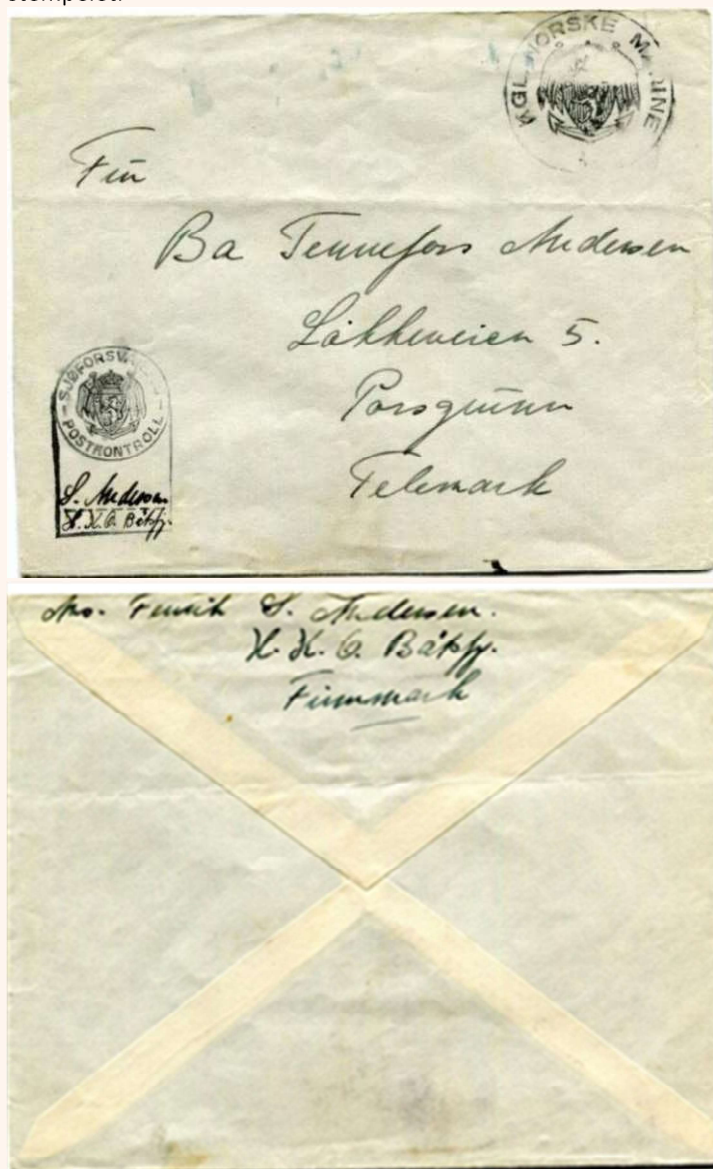 KGL. NORSKE MARINE
Fru
Ba Tennefors Andersen
Løkkeveien 5.
Porsgrunn
Telemark
SJØFORSVARETS
POSTKONTROLL
S. Andersen
Båtsfj.
S. Andersen.
Båtsfj.
Finnmark